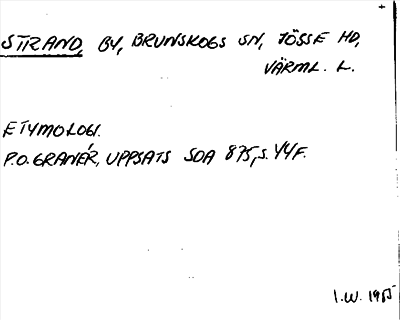 STRAND, BY, BRUNSKOGS SN, JÖSSE HD,
VÄRML. L.
ETYMOLOGI.
P.O. GRANÉR, UPPSATS SOA 875, S. 44F.
I.W. 1955